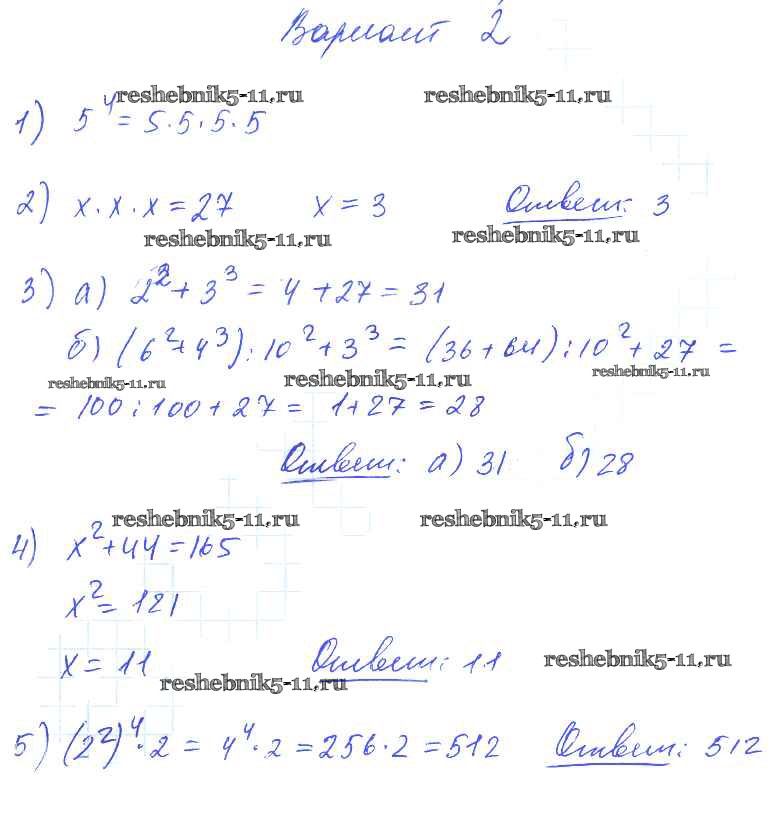 Вариант 2
reshebnik5-11.ru reshebnik5-11.ru
1) 5⁴ = 5·5·5·5
2) x·x·x = 27 x = 3 Ответ: 3
reshebnik5-11.ru reshebnik5-11.ru
3) а) 2² + 3³ = 4 + 27 = 31
б) (6² + 4³) : 10² + 3³ = (36 + 64) : 10² + 27 =
reshebnik5-11.ru reshebnik5-11.ru reshebnik5-11.ru
= 100 : 100 + 27 = 1 + 27 = 28
Ответ: а) 31 б) 28
reshebnik5-11.ru reshebnik5-11.ru
4) x² + 44 = 165
x² = 121
x = 11 Ответ: 11
reshebnik5-11.ru reshebnik5-11.ru
5) (2²)⁴·2 = 4⁴·2 = 256·2 = 512 Ответ: 512